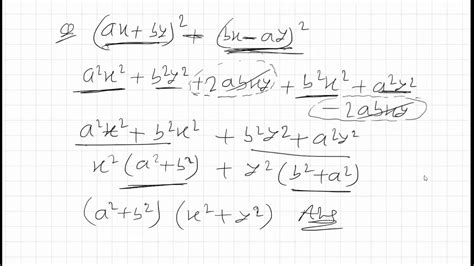 Q (ax+by)² + (bx-ay)²
a²x² + b²y² + 2abxy + b²x² + a²y²
- 2abxy
a²x² + b²x² + b²y² + a²y²
x² (a² + b²) + y² (b² + a²)
(a² + b²) (x² + y²) Ans